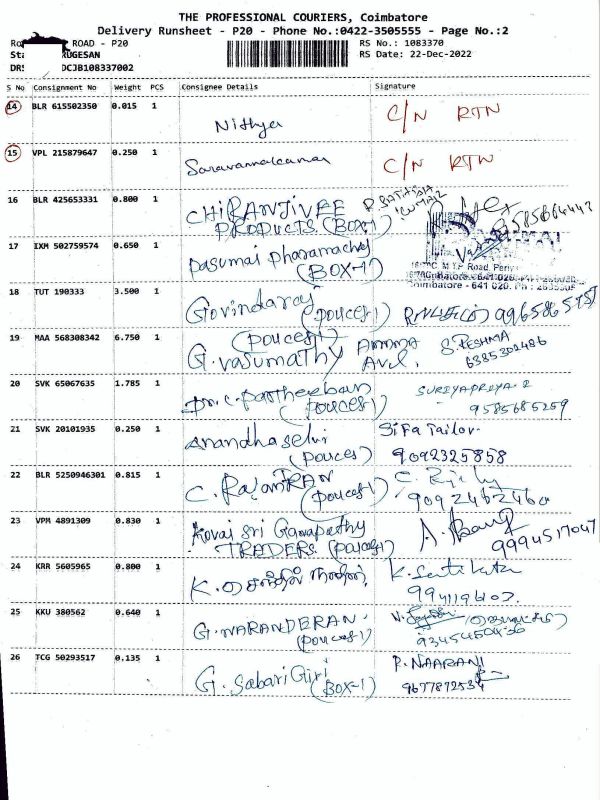 THE PROFESSIONAL COURIERS, Coimbatore
Delivery Runsheet - P20 - Phone No.:0422-3505555 - Page No.:2
ROAD - P20 RS No.: 1083370
RUGESAN RS Date: 22-Dec-2022
DRS DCJB108337002
S No Consignment No Weight PCS Consignee Details Signature
14 BLR 615502350 0.015 1 Nithya C/N RTN
15 VPL 215879647 0.250 1 Saravanakumar C/N RTN
16 BLR 425653331 0.800 1 CHIRANJIVEE
PRODUCTS (BOX-1)
17 IXM 502759574 0.650 1 Pasumai Pharamachy
(BOX-1)
M.T.P Road,
Coimbatore - 641 020.
18 TUT 190333 3.500 1 Govindaraj
(pouces-1)
19 MAA 568308342 6.750 1 (pouces-1)
G. Vasumathy AMMMA S. RESHMA
6385302486
20 SVK 65067635 1.785 1 Dr. C. Partheeban SURIYAPRIYA
(pouces-1) 9585685259
21 SVK 20101935 0.250 1 Anandhaselvi Sifa Tailor
(pouces) 9092325858
22 BLR 5250946301 0.815 1 C. RAJANTRAN
(pouces-1) 9092462460
23 VPM 4891309 0.830 1 Kovai Sri Ganapathy
TRADERS (pouces-1) 9994517047
24 KRR 5605965 0.800 1 K. செந்தில்
25 KKU 380562 0.640 1 G. NARANDERAN
(pouces-1)
26 TCG 50293517 0.135 1 G. Sabari Giri P. NAARANI
(BOX-1) 9677872534